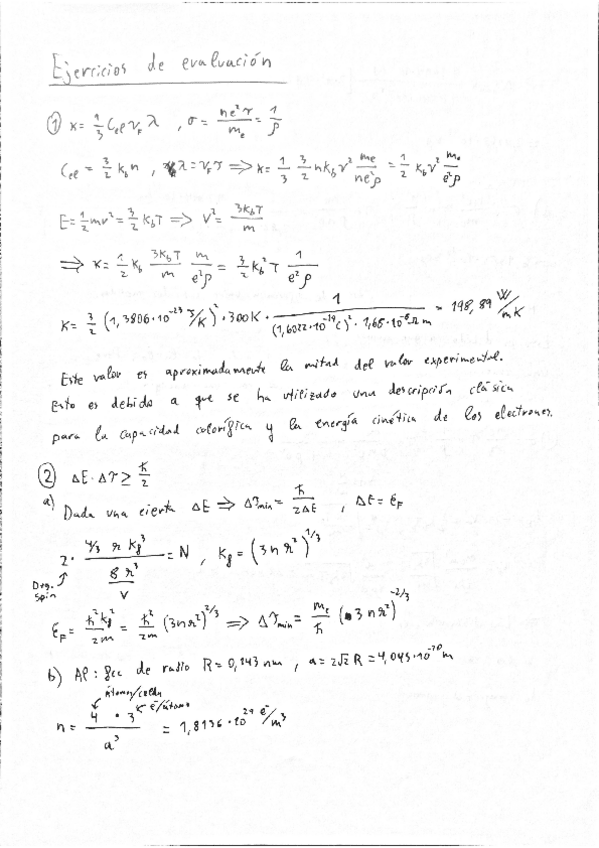 Ejercicios de evaluación
① κ = 1/3 C_el v_F λ , σ = ne²τ/m_e = 1/ρ
C_el = 3/2 k_b n , λ = v_F τ ⇒ κ = 1/3 3/2 n k_b v² m_e/(ne²ρ) = 1/2 k_b v² m_e/(e²ρ)
E = 1/2 mv² = 3/2 k_b T ⇒ v² = 3k_bT/m
⇒ κ = 1/2 k_b 3k_bT/m m/(e²ρ) = 3/2 k_b² T 1/(e²ρ)
κ = 3/2 (1,3806·10⁻²³ J/K)² · 300K · 1/((1,6022·10⁻¹⁹ C)² · 1,68·10⁻⁸ Ω m) = 198,89 W/mK
Este valor es aproximadamente la mitad del valor experimental.
Esto es debido a que se ha utilizado una descripción clásica
para la capacidad calorífica y la energía cinética de los electrones.
② ΔE·Δτ ≥ ħ/2
a) Dada una cierta ΔE ⇒ Δτ_min = ħ/(2ΔE) , ΔE = ε_F
2 · (4/3 π k_f³)/(8π³/V) = N , k_f = (3nπ²)^(1/3)
Deg. spin
ε_F = ħ²k_f²/2m = ħ²/2m (3nπ²)^(2/3) ⇒ Δτ_min = m_e/ħ (3nπ²)^(-2/3)
b) Al: fcc de radio R = 0,143 nm , a = 2√2 R = 4,045·10⁻¹⁰ m
átomos/celda
e⁻/átomo
n = (4 · 3)/a³ = 1,8136·10²⁹ e⁻/m³